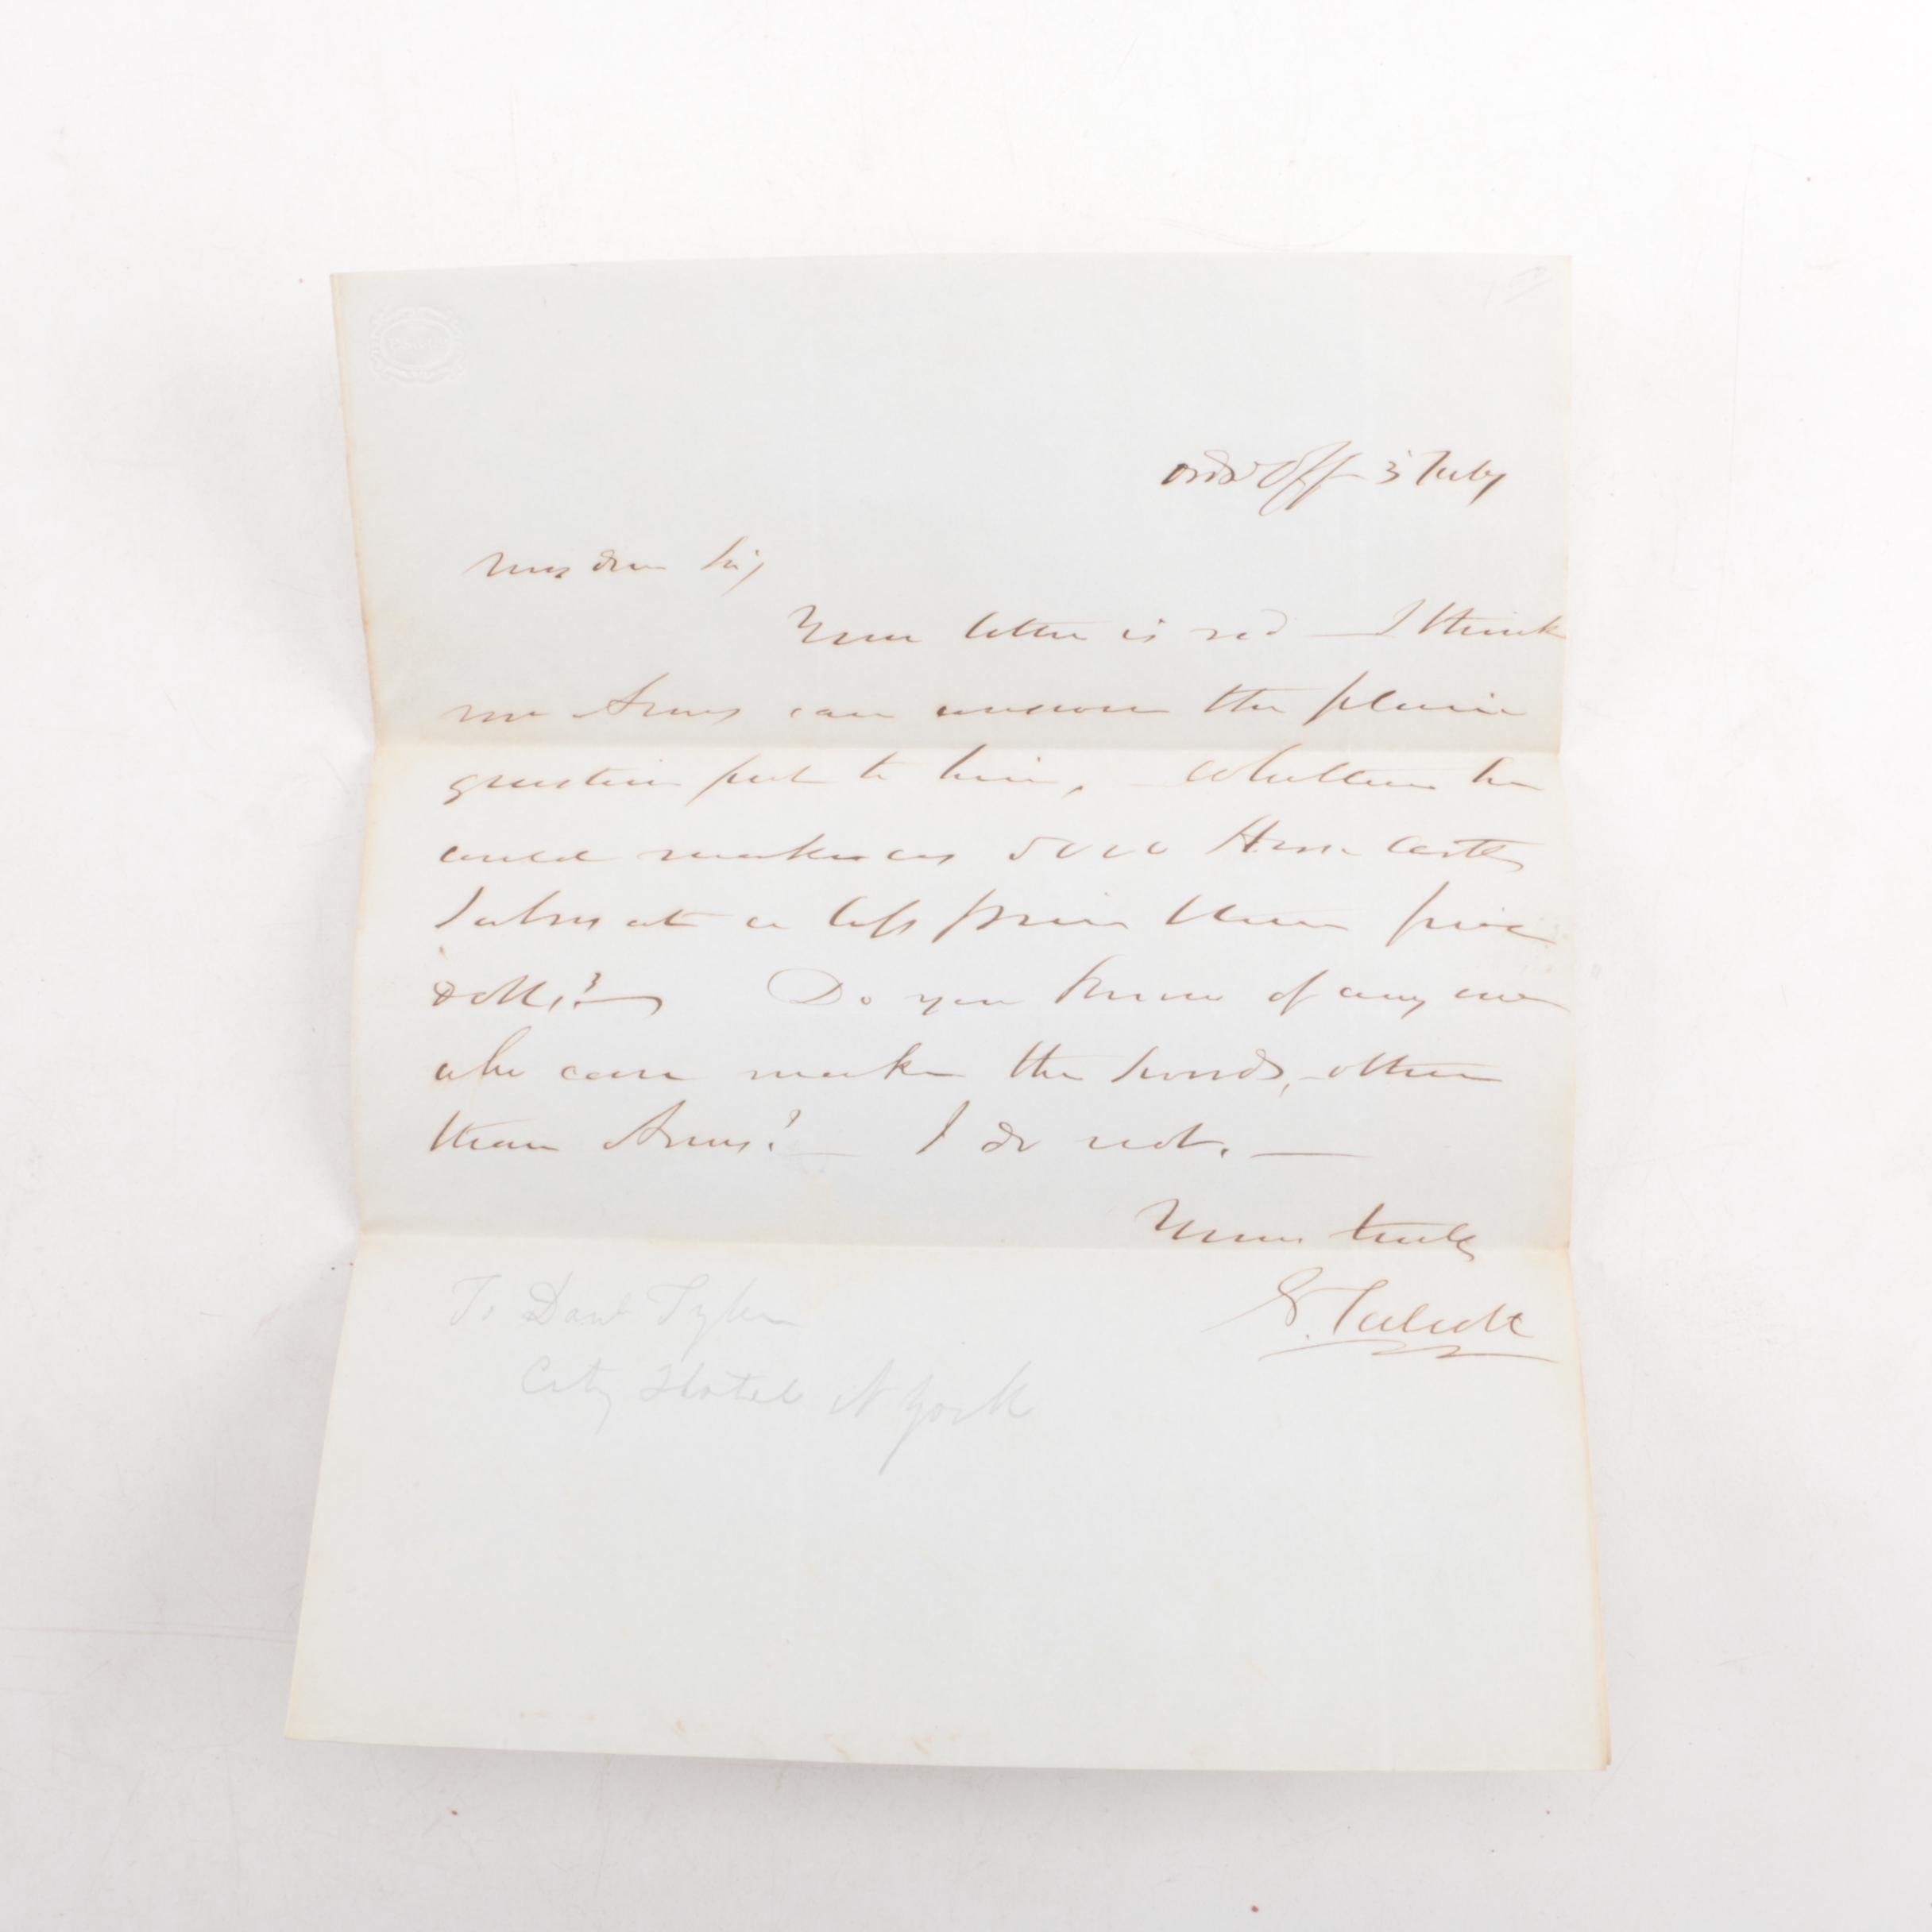 Ord Off 3 July
My dear Sir,
Your letter is recd — I think
Mr Ames can answer the plain
question put to him, - Whether he
could make us 5000 Horse Arty
Sabres at a less price than five
Dolls? — Do you know of any one
who can make the swords, other
than Ames? — I do not. —
Yours truly
G. Talcott
To Danl Tyler
City Hotel N York